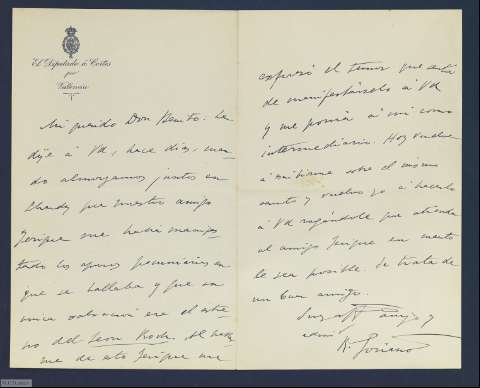 El Diputado á Cortes
por
Valencia
Mi querido Don Benito: Le
dije á Vd, hace dias, cuan-
do almorzamos juntos en
Lhardy que nuestro amigo
Jerique me habia manifes-
tado los apuros pecuniarios en
que se hallaba y que su
unica salvacion era el estre-
no del Leon Roch. Al hablar
me de esto Jerique me
expresó el temor que tenia
de manifestárselo á Vd
y me ponia á mi como
intermediario. Hoy vuelve
á escribirme sobre el mismo
asunto y vuelvo yo á hacerlo
á Vd rogándole que atienda
al amigo Jerique en cuanto
le sea posible. Se trata de
un buen amigo.
Suyo aff amigo y
R. Soriano